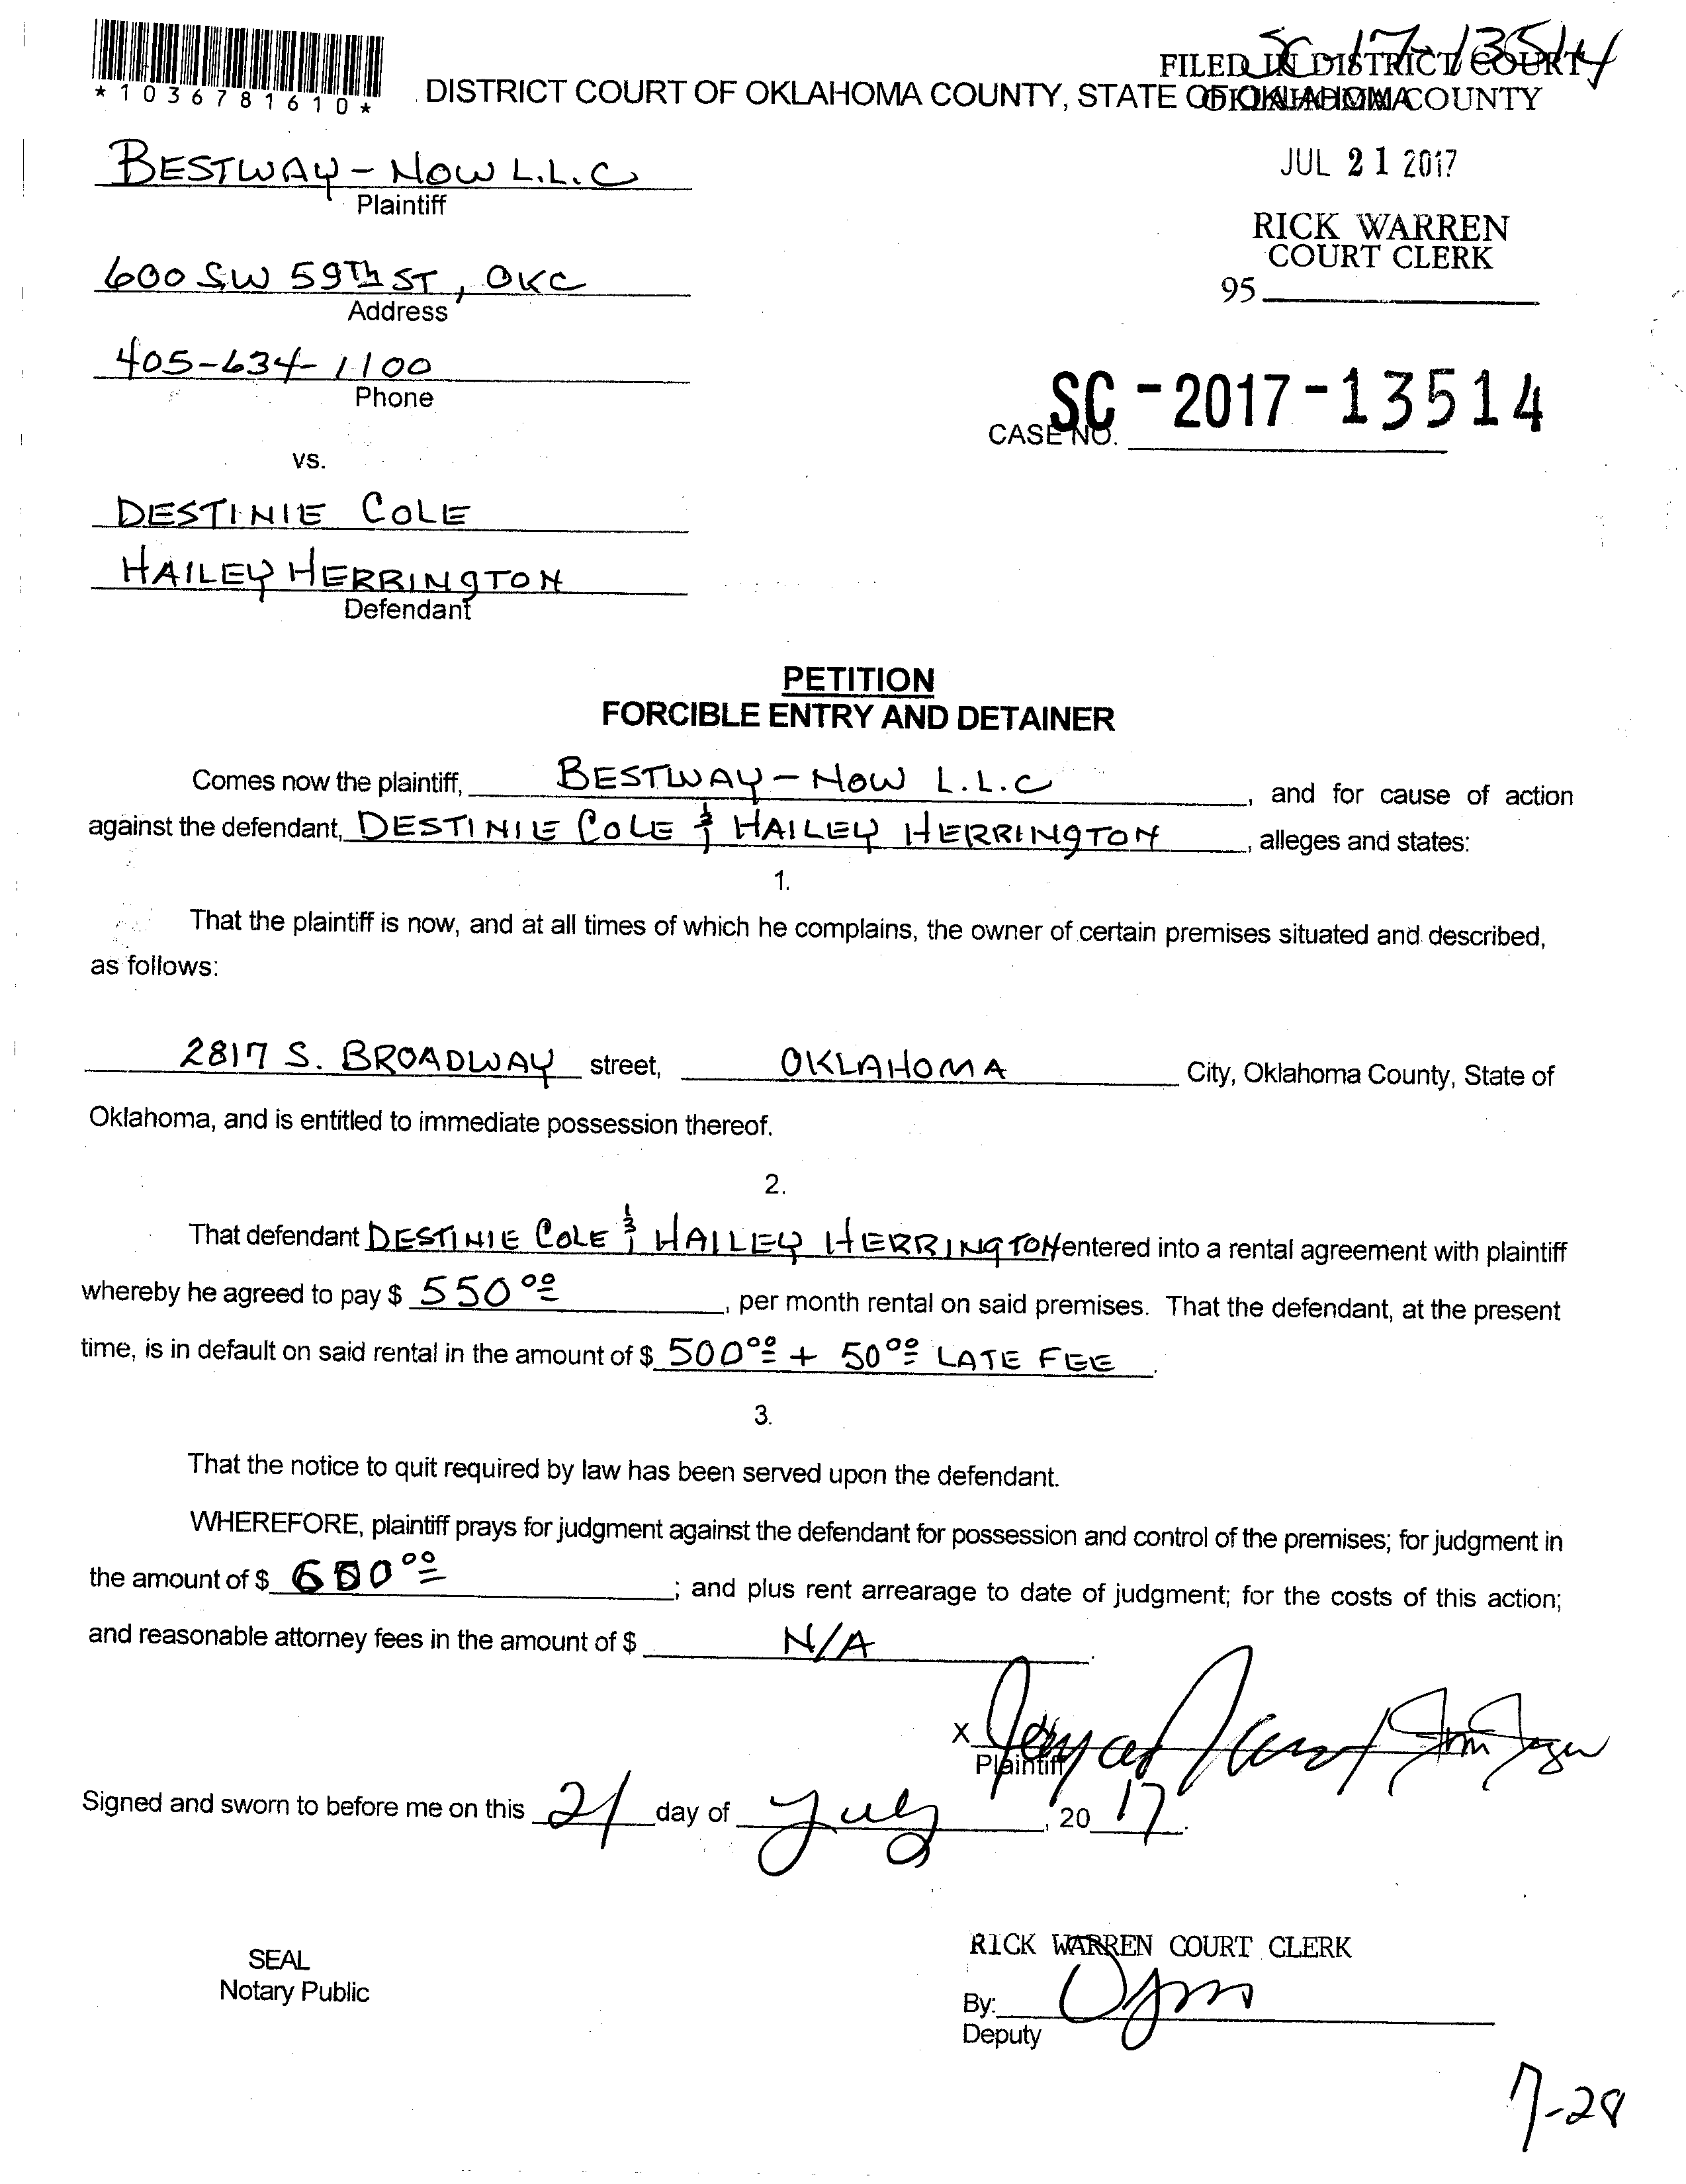 SC-17-13514
FILED IN DISTRICT COURT
*1036781610*
DISTRICT COURT OF OKLAHOMA COUNTY, STATE OF OKLAHOMA
OKLAHOMA COUNTY
BESTWAY - NOW L.L.C
Plaintiff
JUL 21 2017
RICK WARREN
COURT CLERK
95
600 SW 59Th ST, OKC
Address
405-634-1100
Phone
CASE NO. SC-2017-13514
vs.
DESTINIE COLE
HAILEY HERRINGTON
Defendant
PETITION
FORCIBLE ENTRY AND DETAINER
Comes now the plaintiff, BESTWAY - NOW L.L.C, and for cause of action
against the defendant, DESTINIE COLE & HAILEY HERRINGTON, alleges and states:
1.
That the plaintiff is now, and at all times of which he complains, the owner of certain premises situated and described,
as follows:
2817 S. BROADWAY street, OKLAHOMA City, Oklahoma County, State of
Oklahoma, and is entitled to immediate possession thereof.
2.
That defendant DESTINIE COLE & HAILEY HERRINGTON entered into a rental agreement with plaintiff
whereby he agreed to pay $ 550 00, per month rental on said premises. That the defendant, at the present
time, is in default on said rental in the amount of $ 500 00 + 50 00 LATE FEE.
3.
That the notice to quit required by law has been served upon the defendant.
WHEREFORE, plaintiff prays for judgment against the defendant for possession and control of the premises; for judgment in
the amount of $ 00; and plus rent arrearage to date of judgment; for the costs of this action;
and reasonable attorney fees in the amount of $ N/A.
X
Plaintiff
Signed and sworn to before me on this 21 day of July, 2017.
RICK WARREN COURT CLERK
SEAL
Notary Public
By:
Deputy
7-28